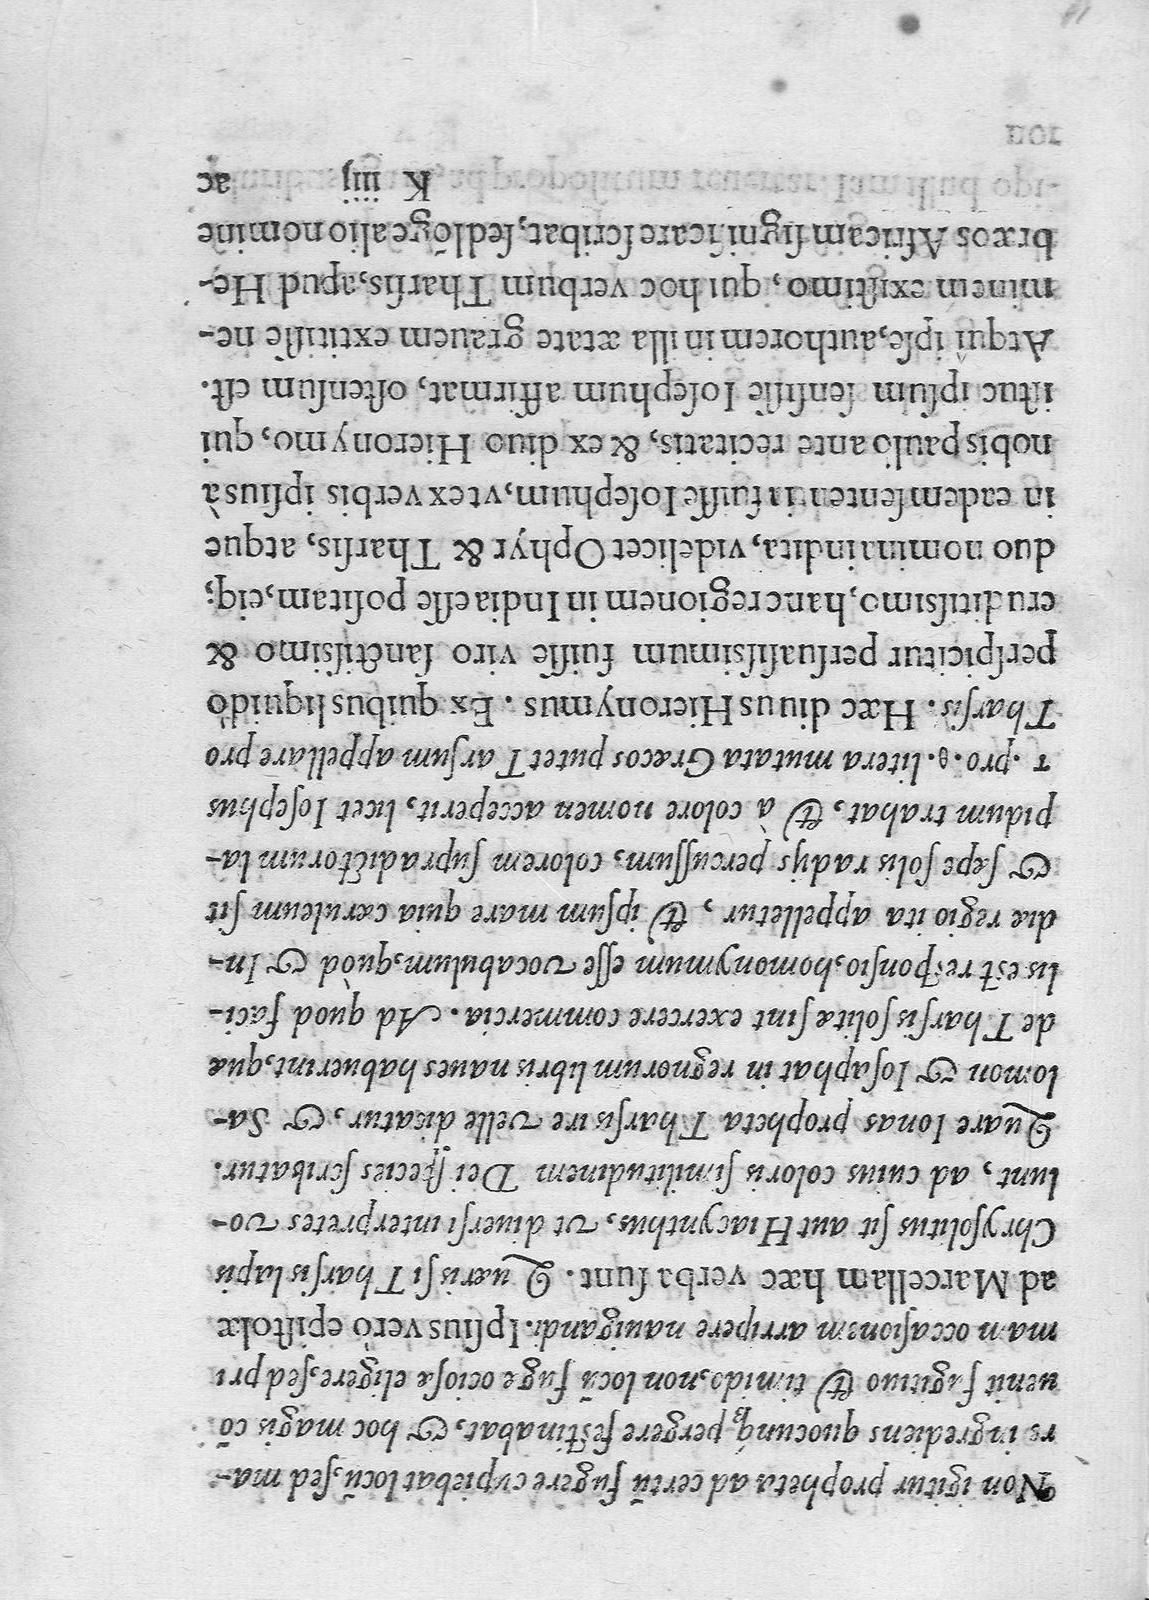 Non igitur propheta ad certũ fugere cupiebat locũ, sed ma-
re ingrediens quocunq; pergere festinabat, & hoc magis cõ
uenit fugitiuo & timido, non locũ fugæ ociosæ eligere, sed pri
mam occasionem arripere nauigandi. Ipsius verò epistolæ
ad Marcellam hæc verba sunt. Quæris si Tharsis lapis
Chrysolitus sit aut Hiacynthus, vt diuersi interpretes vo-
lunt, ad cuius coloris similitudinem Dei species scribatur.
Quare Ionas propheta Tharsis ire velle dicatur, & Sa-
lomon & Iosaphat in regnorum libris naues habuerint, quæ
de Tharsis solitæ sint exercere commercia. Ad quod faci-
lis est responsio, homonymum esse vocabulum, quòd & In-
diæ regio ita appelletur, & ipsum mare quia cæruleum sit
& sæpe solis radijs percussum, colorem supradictorum la-
pidum trahat, & à colore nomen acceperit, licet Iosephus
τ. pro. θ. litera mutata Græcos putet Tarsum appellare pro
Tharsis. Hæc diuus Hieronymus. Ex quibus liquidò
perspicitur persuasissimum fuisse viro sanctissimo &
eruditissimo, hanc regionem in India esse positam, eiq;
duo nomina indita, videlicet Ophyr & Tharsis, atque
in eadem sententia fuisse Iosephum, vt ex verbis ipsius à
nobis paulò ante recitatis, & ex diuo Hieronymo, qui
istuc ipsum sensisse Iosephum affirmat, ostensum est.
Atqui ipse, authorem in illa ætate grauem extitisse ne-
minem existimo, qui hoc verbum Tharsis, apud He-
bræos Africam significare scribat, sed lõge alio nomine
K iiij ac